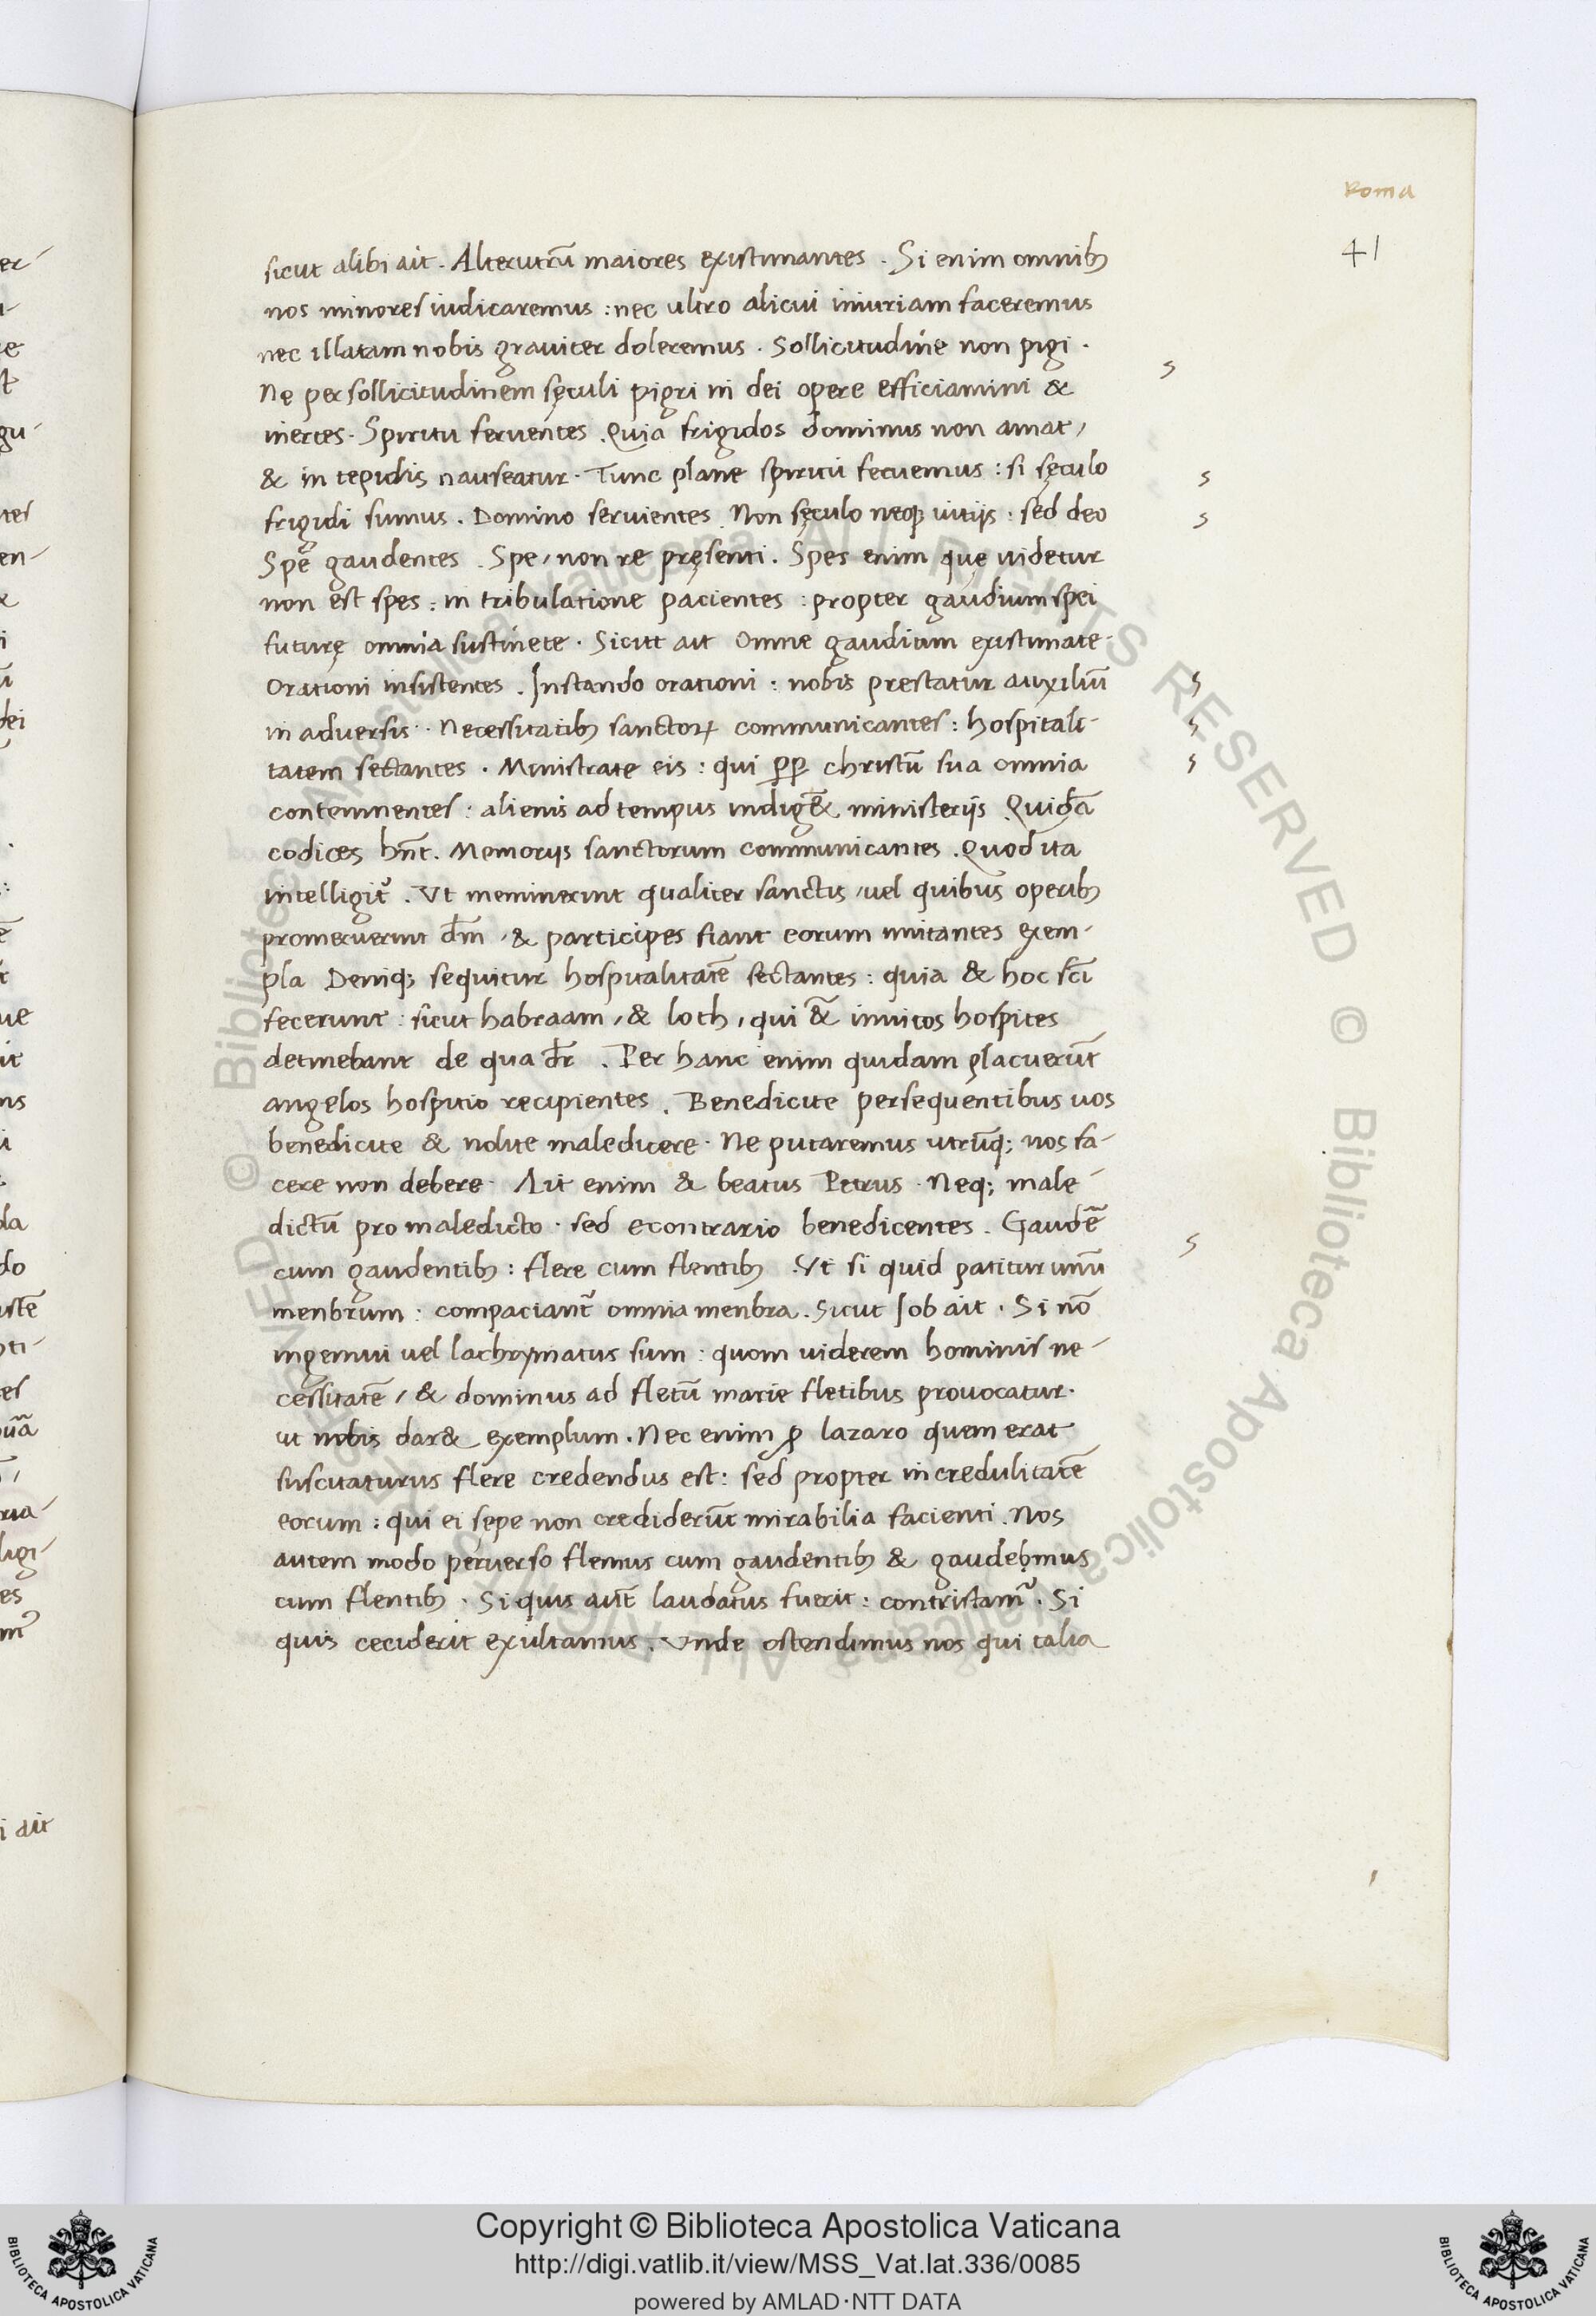 Roma
41
sicut alibi ait. Alterutrũ maiores existimantes. Si enim omnibꝫ
nos minores iudicaremus: nec ultro alicui iniuriam faceremus
nec illatam nobis grauiter doleremus. Sollicitudine non pigi.
Nę per sollicitudinem sęculi pigri in dei opere efficiamini &
inertes. Spiritu feruentes. Quia frigidos dominus non amat,
& in tepidis nauseatur. Tunc plane spiritu feruemus: si sęculo
frigidi sumus. Domino seruientes. Non sęculo neqꝫ uitijs: sed deo
Spe gaudentes. Spe, non re pręsenti. Spes enim quę uidetur
non est spes: in tribulatione pacientes: propter gaudium spei
futurę omnia sustinete. Sicut ait Omne gaudium existimate.
Orationi insistentes. Instando orationi: nobis prestatur auxiliũ
in aduersis. Necessitatibꝫ sanctoꝝ communicantes: hospitali-
tatem sectantes. Ministrate eis: qui ꝓꝑ christũ sua omnia
contemnentes: alienis ad tempus indig&̃ ministerijs. Quidã
codices hñt. Memorijs sanctorum communicantes. Quod ita
intelligit̃. Vt meminerint qualiter sanctis, uel quibus operibꝫ
promeruerint dm̃, & participes fiant eorum imitantes exem-
pla Deniqꝫ sequitur hospitalitatẽ sectantes: quia & hoc sc̃i
fecerunt: sicut habraam, & loth, qui &̃ inuitos hospites
detinebant de qua dr̃. Per hanc enim quidam placuerũt
angelos hospitio recipientes. Benedicite persequentibus uos
benedicite & nolite maledicere. Ne putaremus utrũqꝫ nos fa-
cere non debere. Ait enim & beatus Petrus. Neqꝫ male-
dictũ pro maledicto. sed econtrario benedicentes. Gaudẽ
cum gaudentibꝫ: flere cum flentibꝫ. Vt si quid patitur unũ
menbrum: compaciant̃ omnia menbra. Sicut Iob ait. Si nõ
ingemui uel lachrymatus sum: quom uiderem hominis ne-
cessitatẽ, & dominus ad fletũ marie fletibus prouocatur.
ut nobis dar& exemplum. Nec enim ꝓ lazaro quem erat
suscitaturus flere credendus est: sed propter incredulitatẽ
eorum: qui ei sępe non crediderũt mirabilia facienti. Nos
autem modo peruerso flemus cum gaudentibꝫ & gaudebimus
cum flentibꝫ. Si quis aut̃ laudatus fuerit: contristam̃. Si
quis ceciderit exultamus. Vnde ostendimus nos qui talia
© Biblioteca Apostolica Vaticana ALL RIGHTS RESERVED © Biblioteca Apostolica Vaticana ALL RIGHTS RESERVED
Copyright © Biblioteca Apostolica Vaticana
http://digi.vatlib.it/view/MSS_Vat.lat.336/0085
powered by AMLAD·NTT DATA
BIBLIOTECA APOSTOLICA VATICANA
BIBLIOTECA APOSTOLICA VATICANA